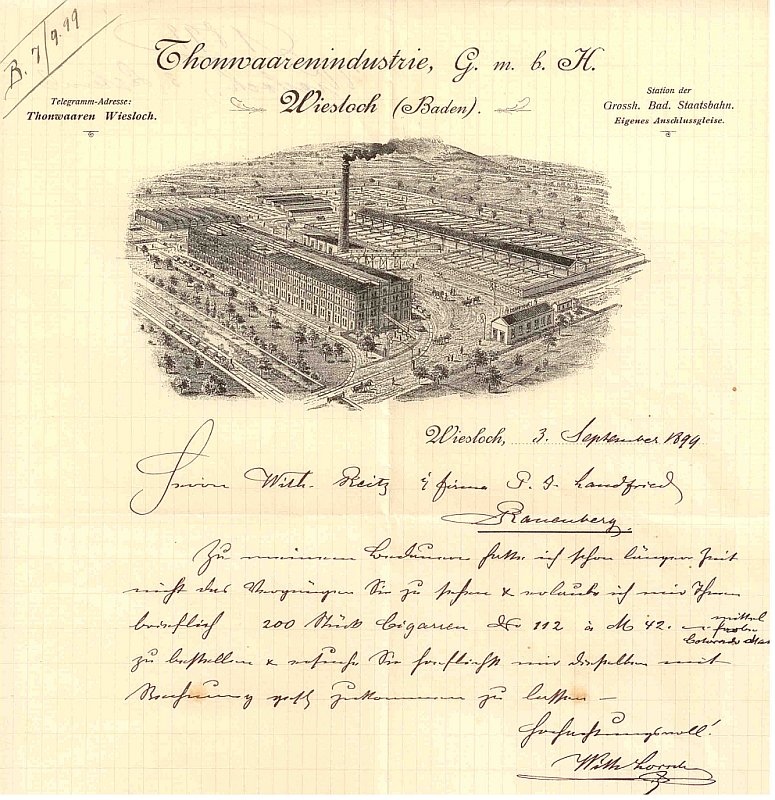 B. 7/9.99
Thonwaarenindustrie, G. m. b. H.
Wiesloch (Baden).
Telegramm-Adresse:
Thonwaaren Wiesloch.
Station der
Grossh. Bad. Staatsbahn.
Eigenes Anschlussgleise.
Wiesloch, 3. September 1899
Herrn Wilh. Reitz i/ Firma P. J. Landfried
Rauenberg.
Zu meinem Bedauern hatte ich schon länger Zeit
nicht das Vergnügen Sie zu sehen & erlaube ich mir Ihnen
brieflich 200 Stück Cigarren No 112 à M 42. mittel
zu bestellen & ersuche Sie höflichst mir dieselben mit
Rechnung gefl. zukommen zu lassen –
Hochachtungsvoll!
Wilh.